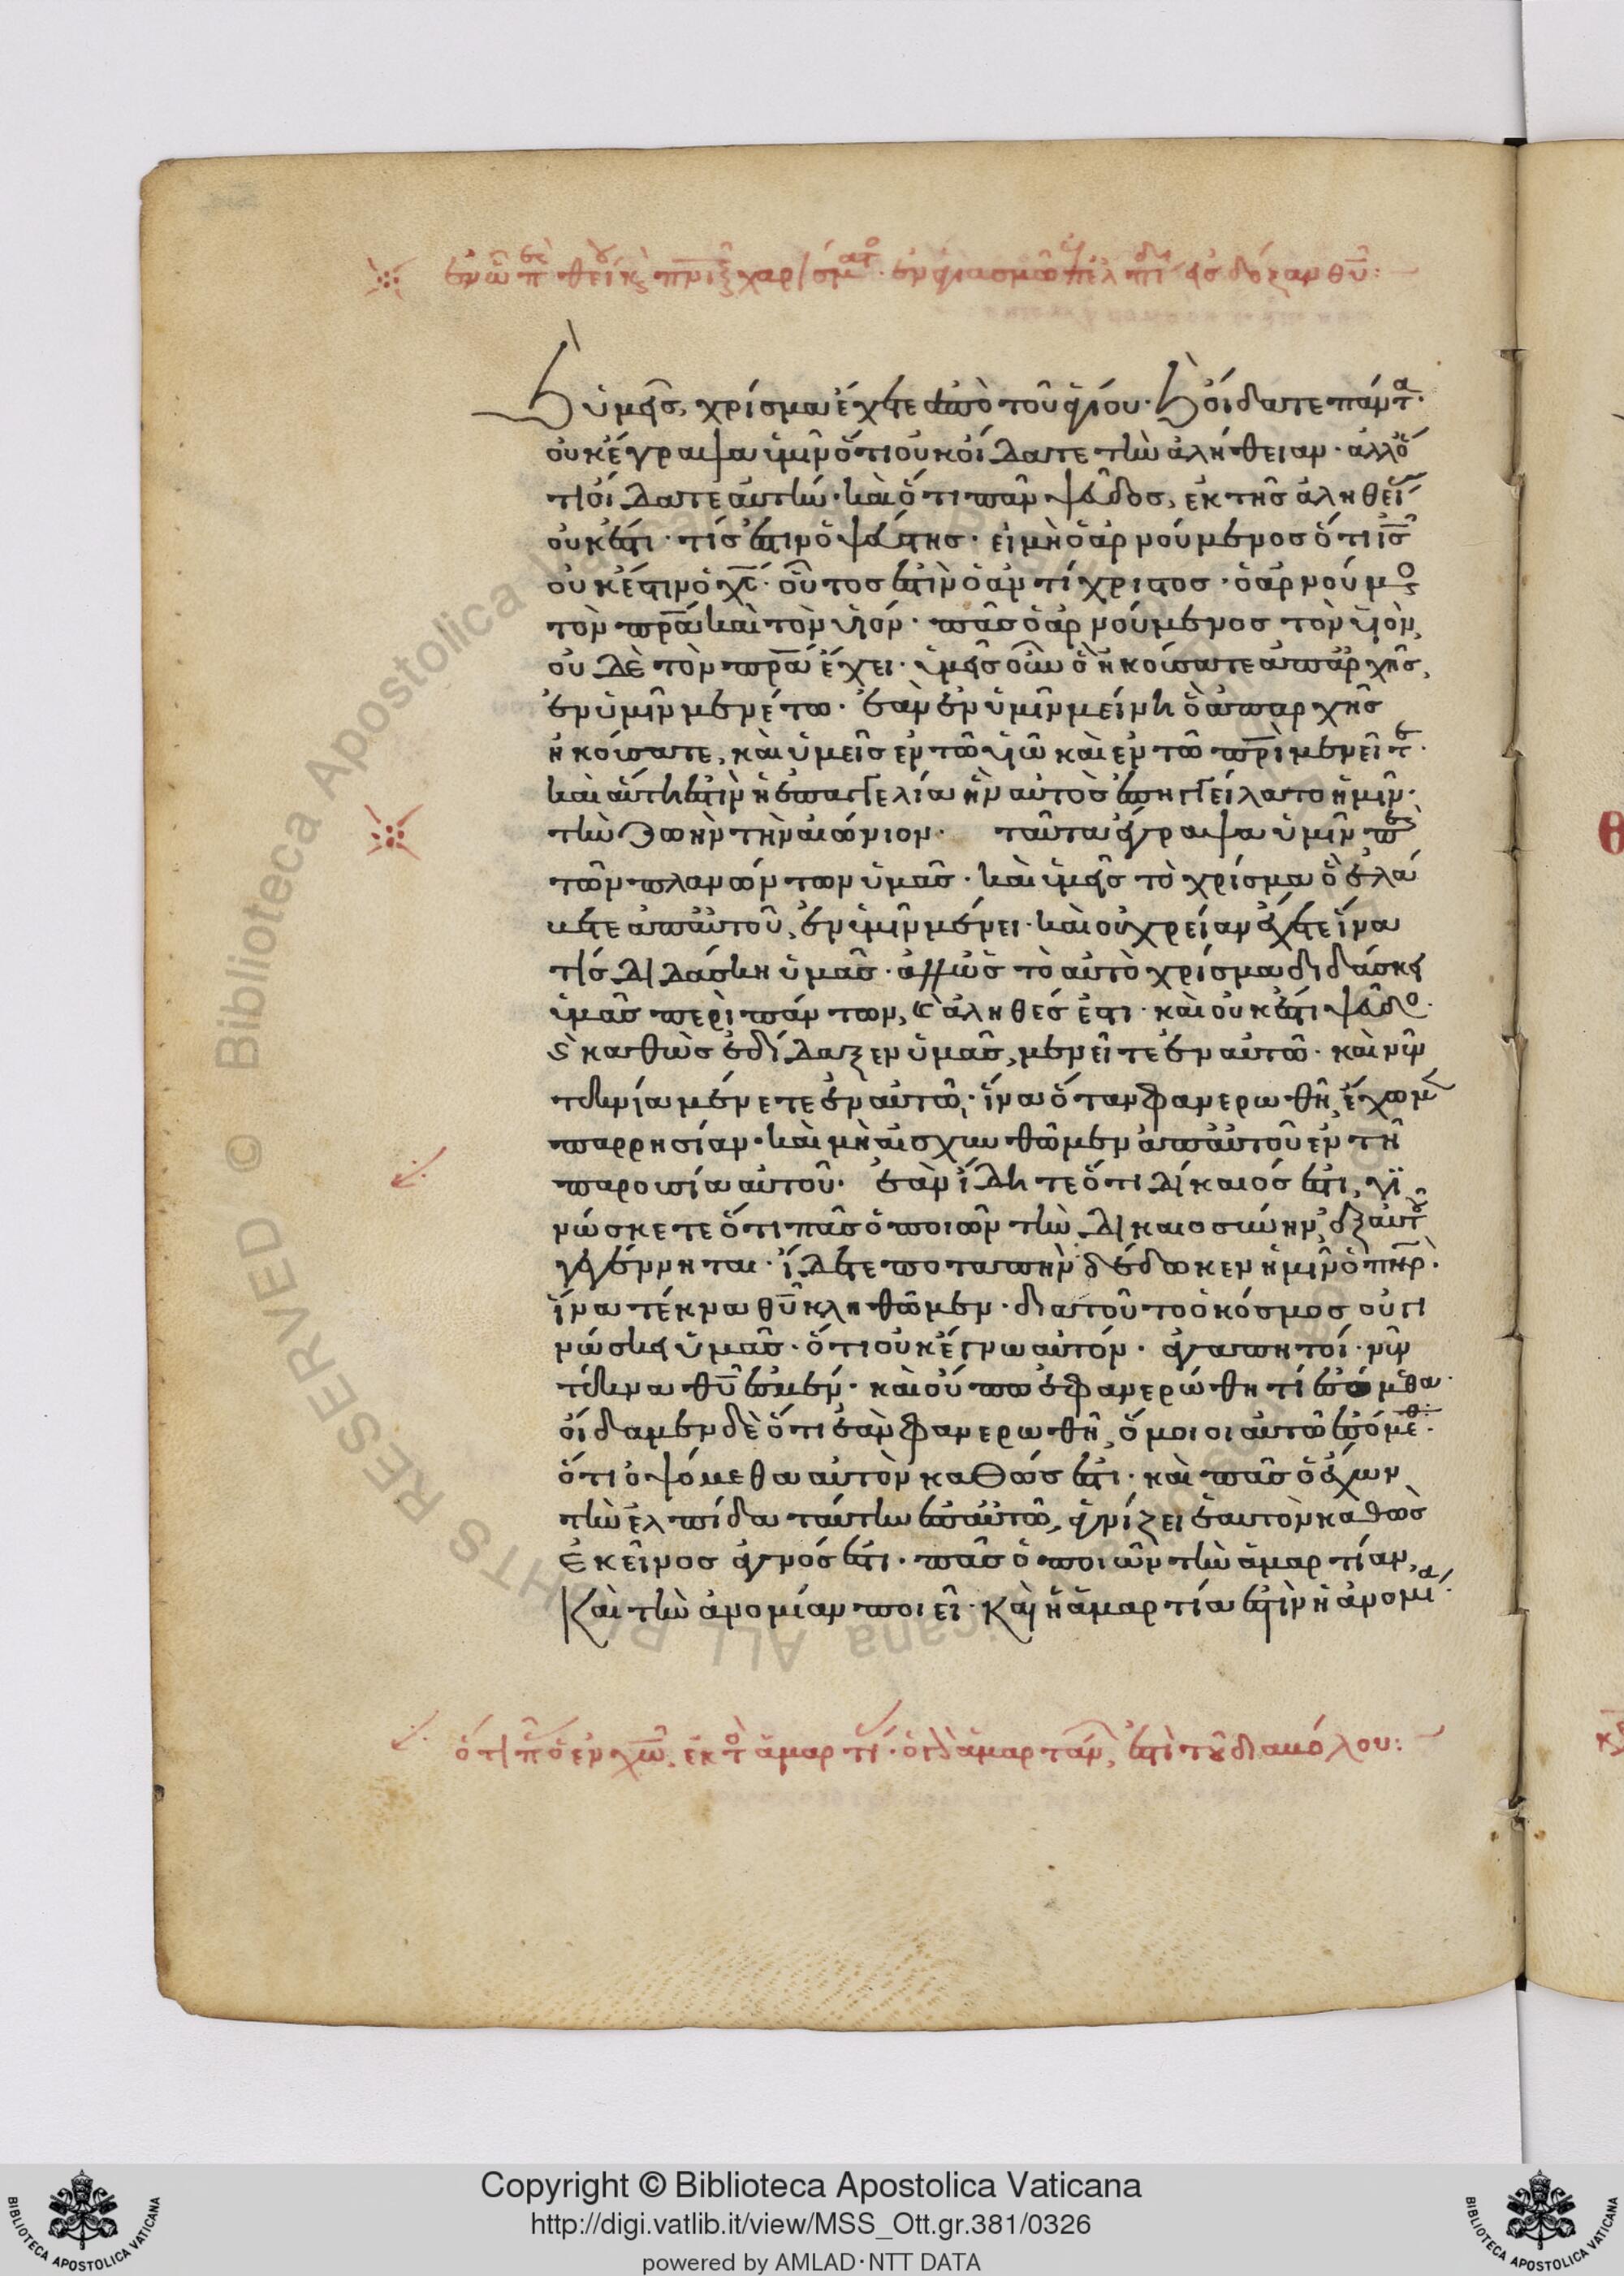 ἐν ᾧ πε θείου κ πνικοῦ χαρίσματο · ἐν ἁγιασμῶ ἐπ ἐλπίδι εἰς δόξαν θυ:
καὶ ὑμεῖς, χρίσμα ἔχετε ἀπὸ τοῦ ἁγίου · καὶ οἴδατε πάντα ·
οὐκ ἔγραψα ὑμῖν ὅτι οὐκ οἴδατε τὴν ἀλήθειαν · ἀλλ ὅ
τι οἴδατε αὐτήν · καὶ ὅτι πᾶν ψεῦδος, ἐκ τῆς ἀληθεί
οὐκ ἔστι · τίς ἐστιν ὁ ψεύστης · εἰ μὴ ὁ ἀρνούμενος ὅτι ις
οὐκ ἔστιν ὁ χς · οὗτος ἐστὶν ὁ ἀντίχριστος · ὁ ἀρνούμος
τὸν πρα καὶ τὸν υἱόν · πᾶς ὁ ἀρνούμενος τὸν υἱὸν,
οὐδὲ τὸν πρα ἔχει · ὑμεῖς οὖν ὃ ἠκούσατε ἀπ ἀρχῆς,
ἐν ὑμῖν μενέτω · ἐὰν ἐν ὑμῖν μείνη ὃ ἀπ αρχῆς
ἠκούσατε, καὶ ὑμεῖς ἐν τῶ υἱῶ καὶ ἐν τῶ πρὶ μενεῖτε ·
καὶ αὕτη ἐστὶν ἡ ἐπαγγελία ἣν αὐτὸς ἐπηγγείλατο ἡμῖν ·
τὴν ζωὴν τὴν αἰώνιον · ταῦτα ἔγραψα ὑμῖν πε
τῶν πλανώντων ὑμᾶς · καὶ ὑμεῖς τὸ χρίσμα ὃ ἐλά
βετε ἀπ αὐτοῦ, ἐν ὑμῖν μένει · καὶ οὐ χρείαν ἔχετε ἵνα
τίς διδάσκη ὑμᾶς · ἀλλ ὡς τὸ αὐτὸ χρίσμα διδάσκει
ὑμᾶς περὶ πάντων, καὶ ἀληθές ἐστι · καὶ οὐκ ἔστι ψεῦδο ·
καὶ καθὼς ἐδίδαξεν ὑμᾶς, μενεῖτε ἐν αὐτῶ · καὶ νῦν
τεκνία μένετε ἐν αὐτῶ, ἵνα ὅταν φανερωθῆ, ἔχωμ
παρρησίαν · καὶ μὴ αἰσχυνθῶμεν ἀπ αὐτοῦ ἐν τῆ
παρουσία αὐτοῦ · ἐὰν ἴδητε ὅτι δίκαιός ἐστι, γι
νώσκετε ὅτι πᾶς ὁ ποιῶν τὴν δικαιοσύνην, ἐξ αὐτοῦ
γεγέννηται · ἴδετε ποταπὴν δέδωκεν ἡμῖν ὁ πηρ ·
ἵνα τέκνα θυ κληθῶμεν · διατοῦτο ὁ κόσμος οὐ γι
νώσκει ὑμᾶς · ὅτι οὐκ ἔγνω αὐτόν · ἀγαπητοί · νῦν
τέκνα θυ ἐσμέν · καὶ οὔπω ἐφανερώθη τί ἐσόμεθα ·
οἴδαμεν δὲ ὅτι ἐὰν φανερωθῆ, ὅμοιοι αὐτῶ ἐσόμεθ ·
ὅτι ὀψόμεθα αὐτὸν καθώς ἐστι · καὶ πᾶς ὁ ἔχων
τὴν ἐλπίδα ταύτην ἐπ αὐτῶ, ἁγνίζει ἑαυτὸν καθὼς
ἐκεῖνος ἁγνός ἐστι · πᾶς ὁ ποιῶν τὴν ἁμαρτίαν,
καὶ τὴν ἀνομίαν ποιεῖ · καὶ ἡ ἁμαρτία ἐστὶν ἡ ἀνομία ·
ὅτι π ὁ ἐν χω, ἐκτὸ ἁμαρτί · ὁ δὲ ἁμαρτάν, ἐστὶ τοῦ διαβόλου:
Copyright © Biblioteca Apostolica Vaticana
http://digi.vatlib.it/view/MSS_Ott.gr.381/0326
powered by AMLAD·NTT DATA